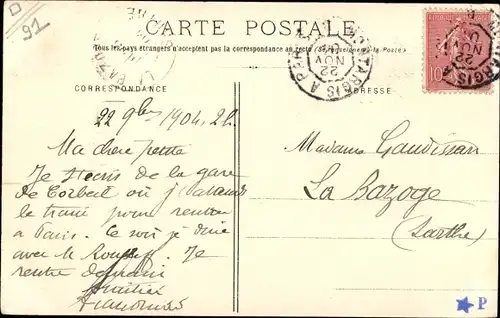 91
CARTE POSTALE
Tous les pays étrangers n'acceptent pas la correspondance au recto (Se renseigner à la Poste).
CORRESPONDANCE
ADRESSE
MONTARGIS A PARIS
22 NOV
10
22 9bre 1904. 22
Ma chère petite
Je t'écris de la gare
de Corbeil où j'attends
le train pour rentrer
à Paris. Ce soir je dine
avec M. Je
rentre demain
Madame Gaudissard
La Bazoge
(Sarthe)
P